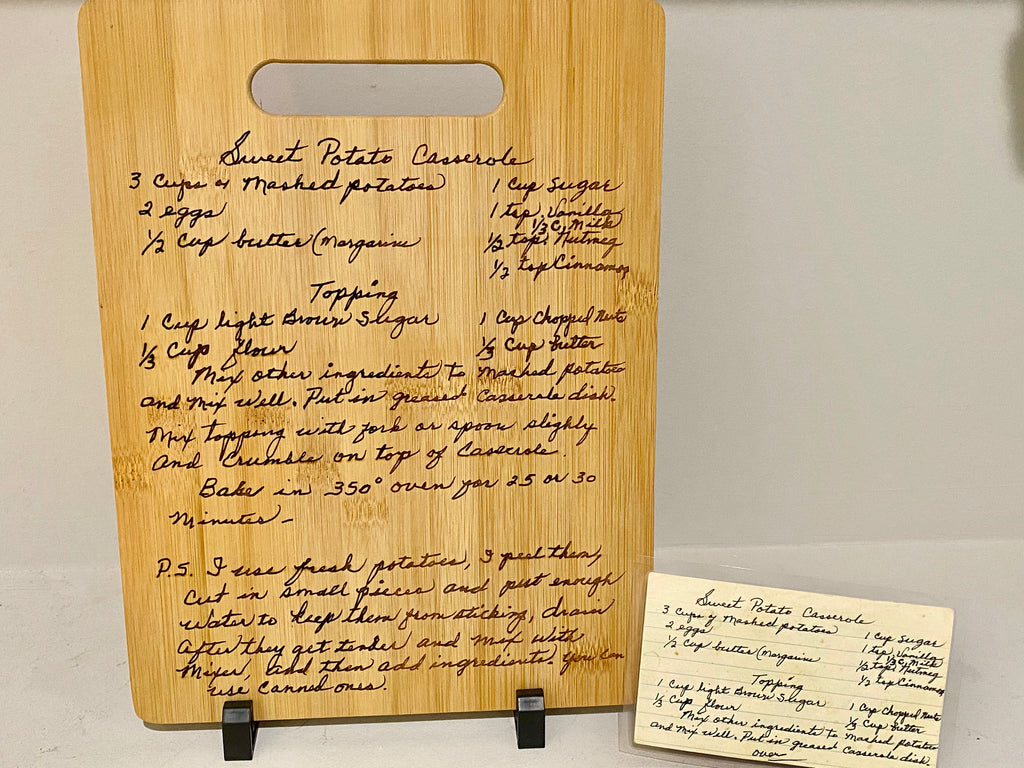 Sweet Potato Casserole
3 Cups of Mashed potatoes
1 Cup Sugar
2 eggs
1 tsp. Vanilla
1/3 C. Milk
1/2 cup butter (Margarine
1/2 tsp. Nutmeg
1/2 tsp Cinnamon
Topping
1 Cup light Brown Sugar
1 Cup Chopped Nuts
1/3 Cup flour
1/3 Cup butter
Mix other ingredients to Mashed potatoes
and Mix well. Put in greased Casserole dish.
Mix topping with fork or spoon slighly
And Crumble on top of Casserole.
Bake in 350° oven for 25 or 30
Minutes -
P.S. I use fresh potatoes, I peel them,
Cut in small pieces and put enough
water to keep them from sticking, drain
after they get tender and mix with
Mixer, and then add ingredients. you can
use canned ones.
Sweet Potato Casserole
3 Cups of Mashed potatoes
1 Cup Sugar
2 eggs
1 tsp. Vanilla
1/3 C. Milk
1/2 cup butter (Margarine
1/2 tsp. Nutmeg
1/2 tsp Cinnamon
Topping
1 Cup light Brown Sugar
1 Cup Chopped Nuts
1/3 Cup flour
1/3 Cup butter
Mix other ingredients to Mashed potatoes
and Mix well. Put in greased Casserole dish.
over